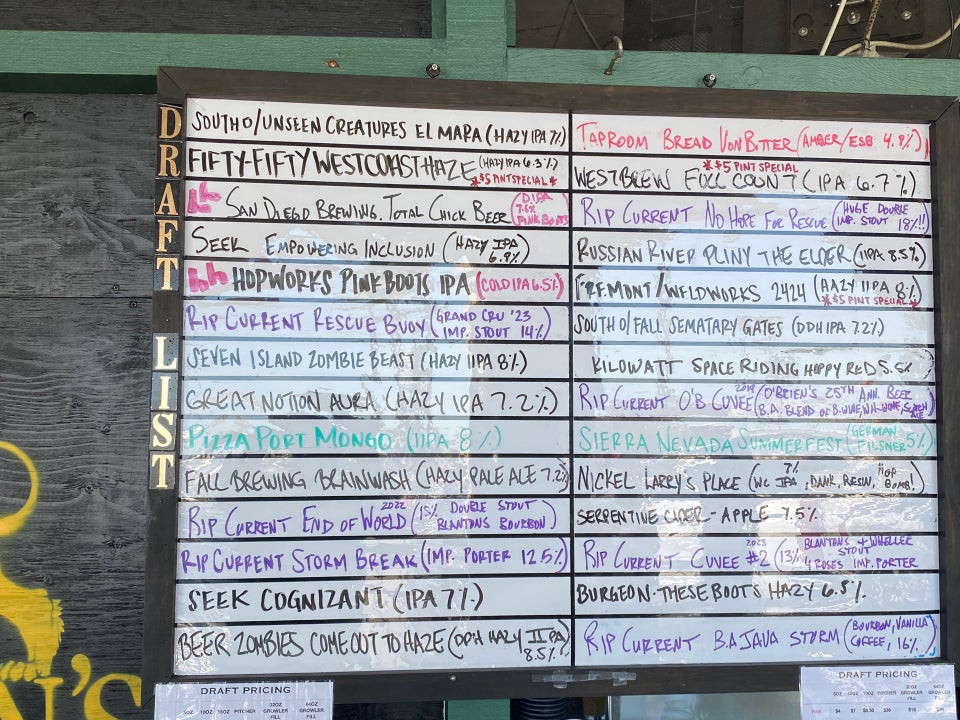 DRAFT LIST
SOUTH O/UNSEEN CREATURES EL MAPA (HAZY IPA 7%)
FIFTY-FIFTY WESTCOAST HAZE (HAZY IPA 6.3%)
*$5 PINT SPECIAL*
SAN DIEGO BREWING. TOTAL CHICK BEER (DIPA 7.6% PINK BOOTS)
SEEK EMPOWERING INCLUSION (HAZY IPA 6.9%)
HOPWORKS PINK BOOTS IPA (COLD IPA 6.5%)
RIP CURRENT RESCUE BUOY (GRAND CRU '23 IMP. STOUT 14%)
SEVEN ISLAND ZOMBIE BEAST (HAZY IIPA 8%)
GREAT NOTION AURA (HAZY IPA 7.2%)
PIZZA PORT MONGO (IIPA 8%)
FALL BREWING BRAINWASH (HAZY PALE ALE 7.2%)
RIP CURRENT END OF WORLD 2022 (15% DOUBLE STOUT BLANTONS BOURBON)
RIP CURRENT STORM BREAK (IMP. PORTER 12.5%)
SEEK COGNIZANT (IPA 7%)
BEER ZOMBIES COME OUT TO HAZE (DDH HAZY IIPA 8.5%)
TAPROOM BREAD VON BITTER (AMBER/ESB 4.8%)
*$5 PINT SPECIAL*
WESTBREW FULL COUNT (IPA 6.7%)
RIP CURRENT NO HOPE FOR RESCUE (HUGE DOUBLE IMP. STOUT 18%!!)
RUSSIAN RIVER PLINY THE ELDER (IIPA 8.5%)
FREMONT/WELDWORKS 2424 (HAZY IIPA 8%)
*$5 PINT SPECIAL*
SOUTH O/FALL SEMATARY GATES (DDH IPA 7.2%)
KILOWATT SPACE RIDING HOPPY RED 5.5%
RIP CURRENT O'B CUVEE 2019 (O'BRIEN'S 25TH ANN. BEER
B.A. BLEND OF B.WINE,
SIERRA NEVADA SUMMERFEST (GERMAN PILSNER 5%)
NICKEL LARRY'S PLACE (7% WC IPA, DANK, RESIN, HOP BOMB!)
SERPENTINE CIDER - APPLE 7.5%
RIP CURRENT CUVEE #2 2023 (13% BLANTONS + WHELLER STOUT
4 ROSES IMP. PORTER
BURGEON. THESE BOOTS HAZY 6.5%
RIP CURRENT BAJAVA STORM (BOURBON, VANILLA COFFEE, 16%)
DRAFT PRICING
5OZ 10OZ 16OZ PITCHER 32OZ GROWLER FILL 64OZ GROWLER FILL
DRAFT PRICING
5OZ 10OZ PITCHER 32OZ GROWLER FILL 64OZ GROWLER FILL
N'S